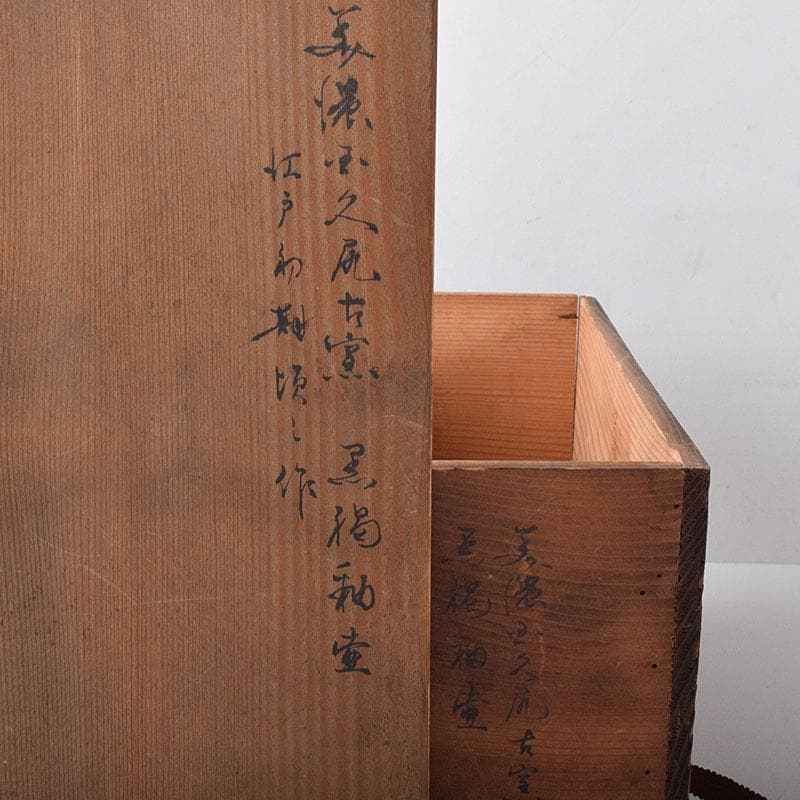 美濃国久尻古窯 黒褐釉壷
江戸初期頃之作
美濃国久尻古窯
黒褐釉壷